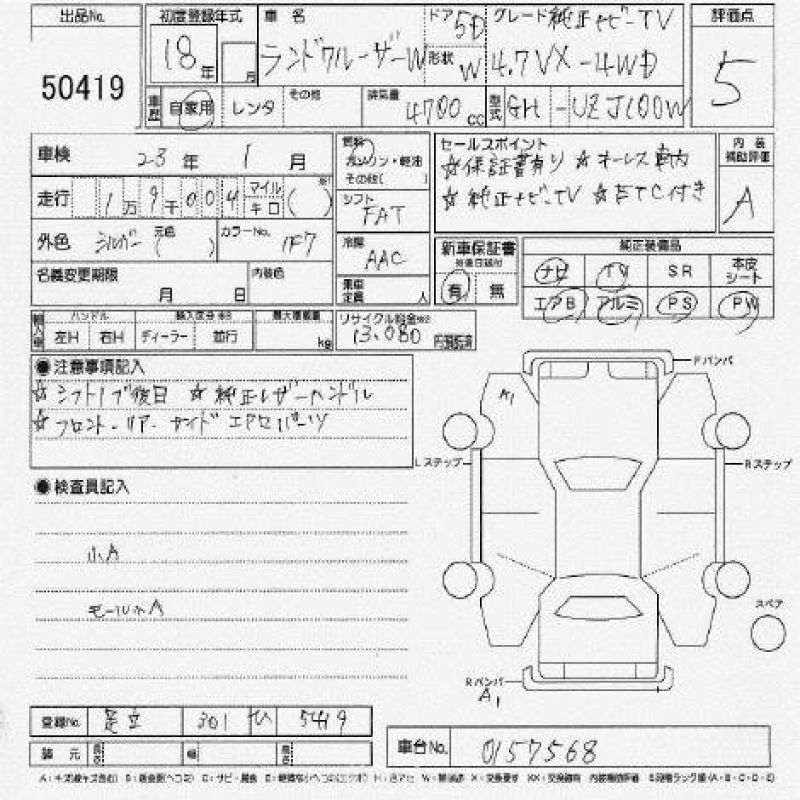 出品No.
50419
初度登録年式
18年 月
車名
ランドクルーザーW
ドア 5D
形状 W
グレード 純正ナビ-TV
4.7VX-4WD
評価点
5
車歴 自家用 レンタ その他
排気量 4700cc
型式 GH-UZJ100W
車検 23年 1月
走行 1万9千004 マイル キロ ( )
外色 シルバー 元色 ( )
カラーNo. 1F7
名義変更期限 月 日
内装色
燃料 ガソリン・軽油
その他( )
シフト FAT
冷房 AAC
乗車定員 人
セールスポイント
☆保証書有り ☆オーレス車内
☆純正ナビ-TV ☆ETC付き
内装補助評価
A
新車保証書
有 無
純正装備品
ナビ TV SR 本皮シート
エアB アルミ PS PW
輸入車 ハンドル 左H 右H
輸入区分 ディーラー 並行
最大積載量 kg
リサイクル料金
13.080
●注意事項記入
☆シフトノブ後日 ☆純正レザーハンドル
☆フロント・リア・サイドエアロパーツ
●検査員記入
小A
モール小A
Fバンパ
A1
Lステップ
Rステップ
スペア
Rバンパ
A1
登録No. 足立 301 ひ 5419
装元 長さ 幅 高さ
車台No. 0157568